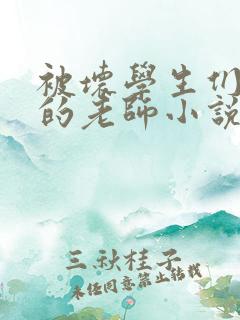 被壞學生们
的老師小說
三秋桂子
未经同意禁止转载